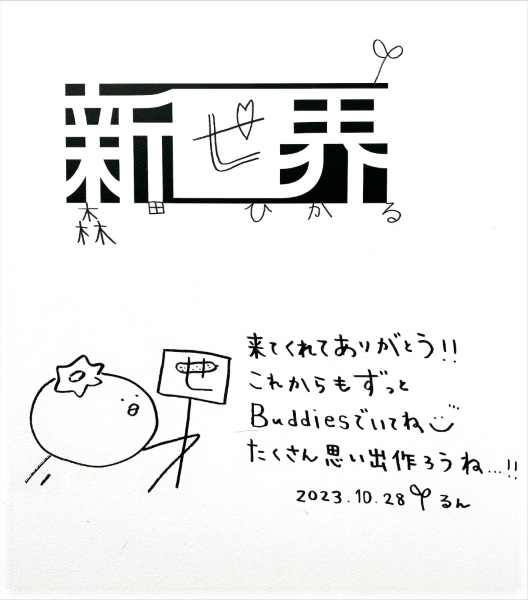 新世界
森田ひかる
せ
来てくれてありがとう!!
これからもずっと
Buddiesでいてね
たくさん思い出作ろうね...!!
2023.10.28 るん